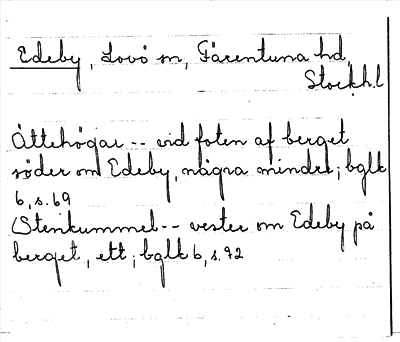 Edeby, Lovö sn, Färentuna hd,
Stockh.l
Ättehögar -- vid foten af berget
söder om Edeby, några mindre; bglk
6, s. 69
Stenkummel -- vester om Edeby på
berget, ett; bglk 6, s. 72